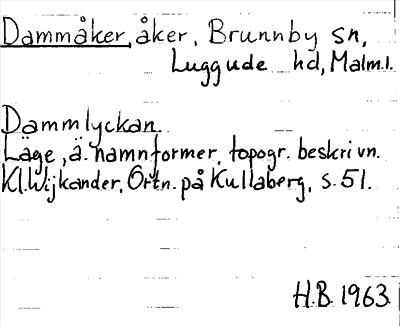 Dammåker, åker, Brunnby sn,
Luggude hd, Malm.l.
Dammlyckan.
Läge, ä. namnformer, topogr. beskrivn.
Kl. Wijkander, Ortn. på Kullaberg, s. 51.
H.B. 1963.